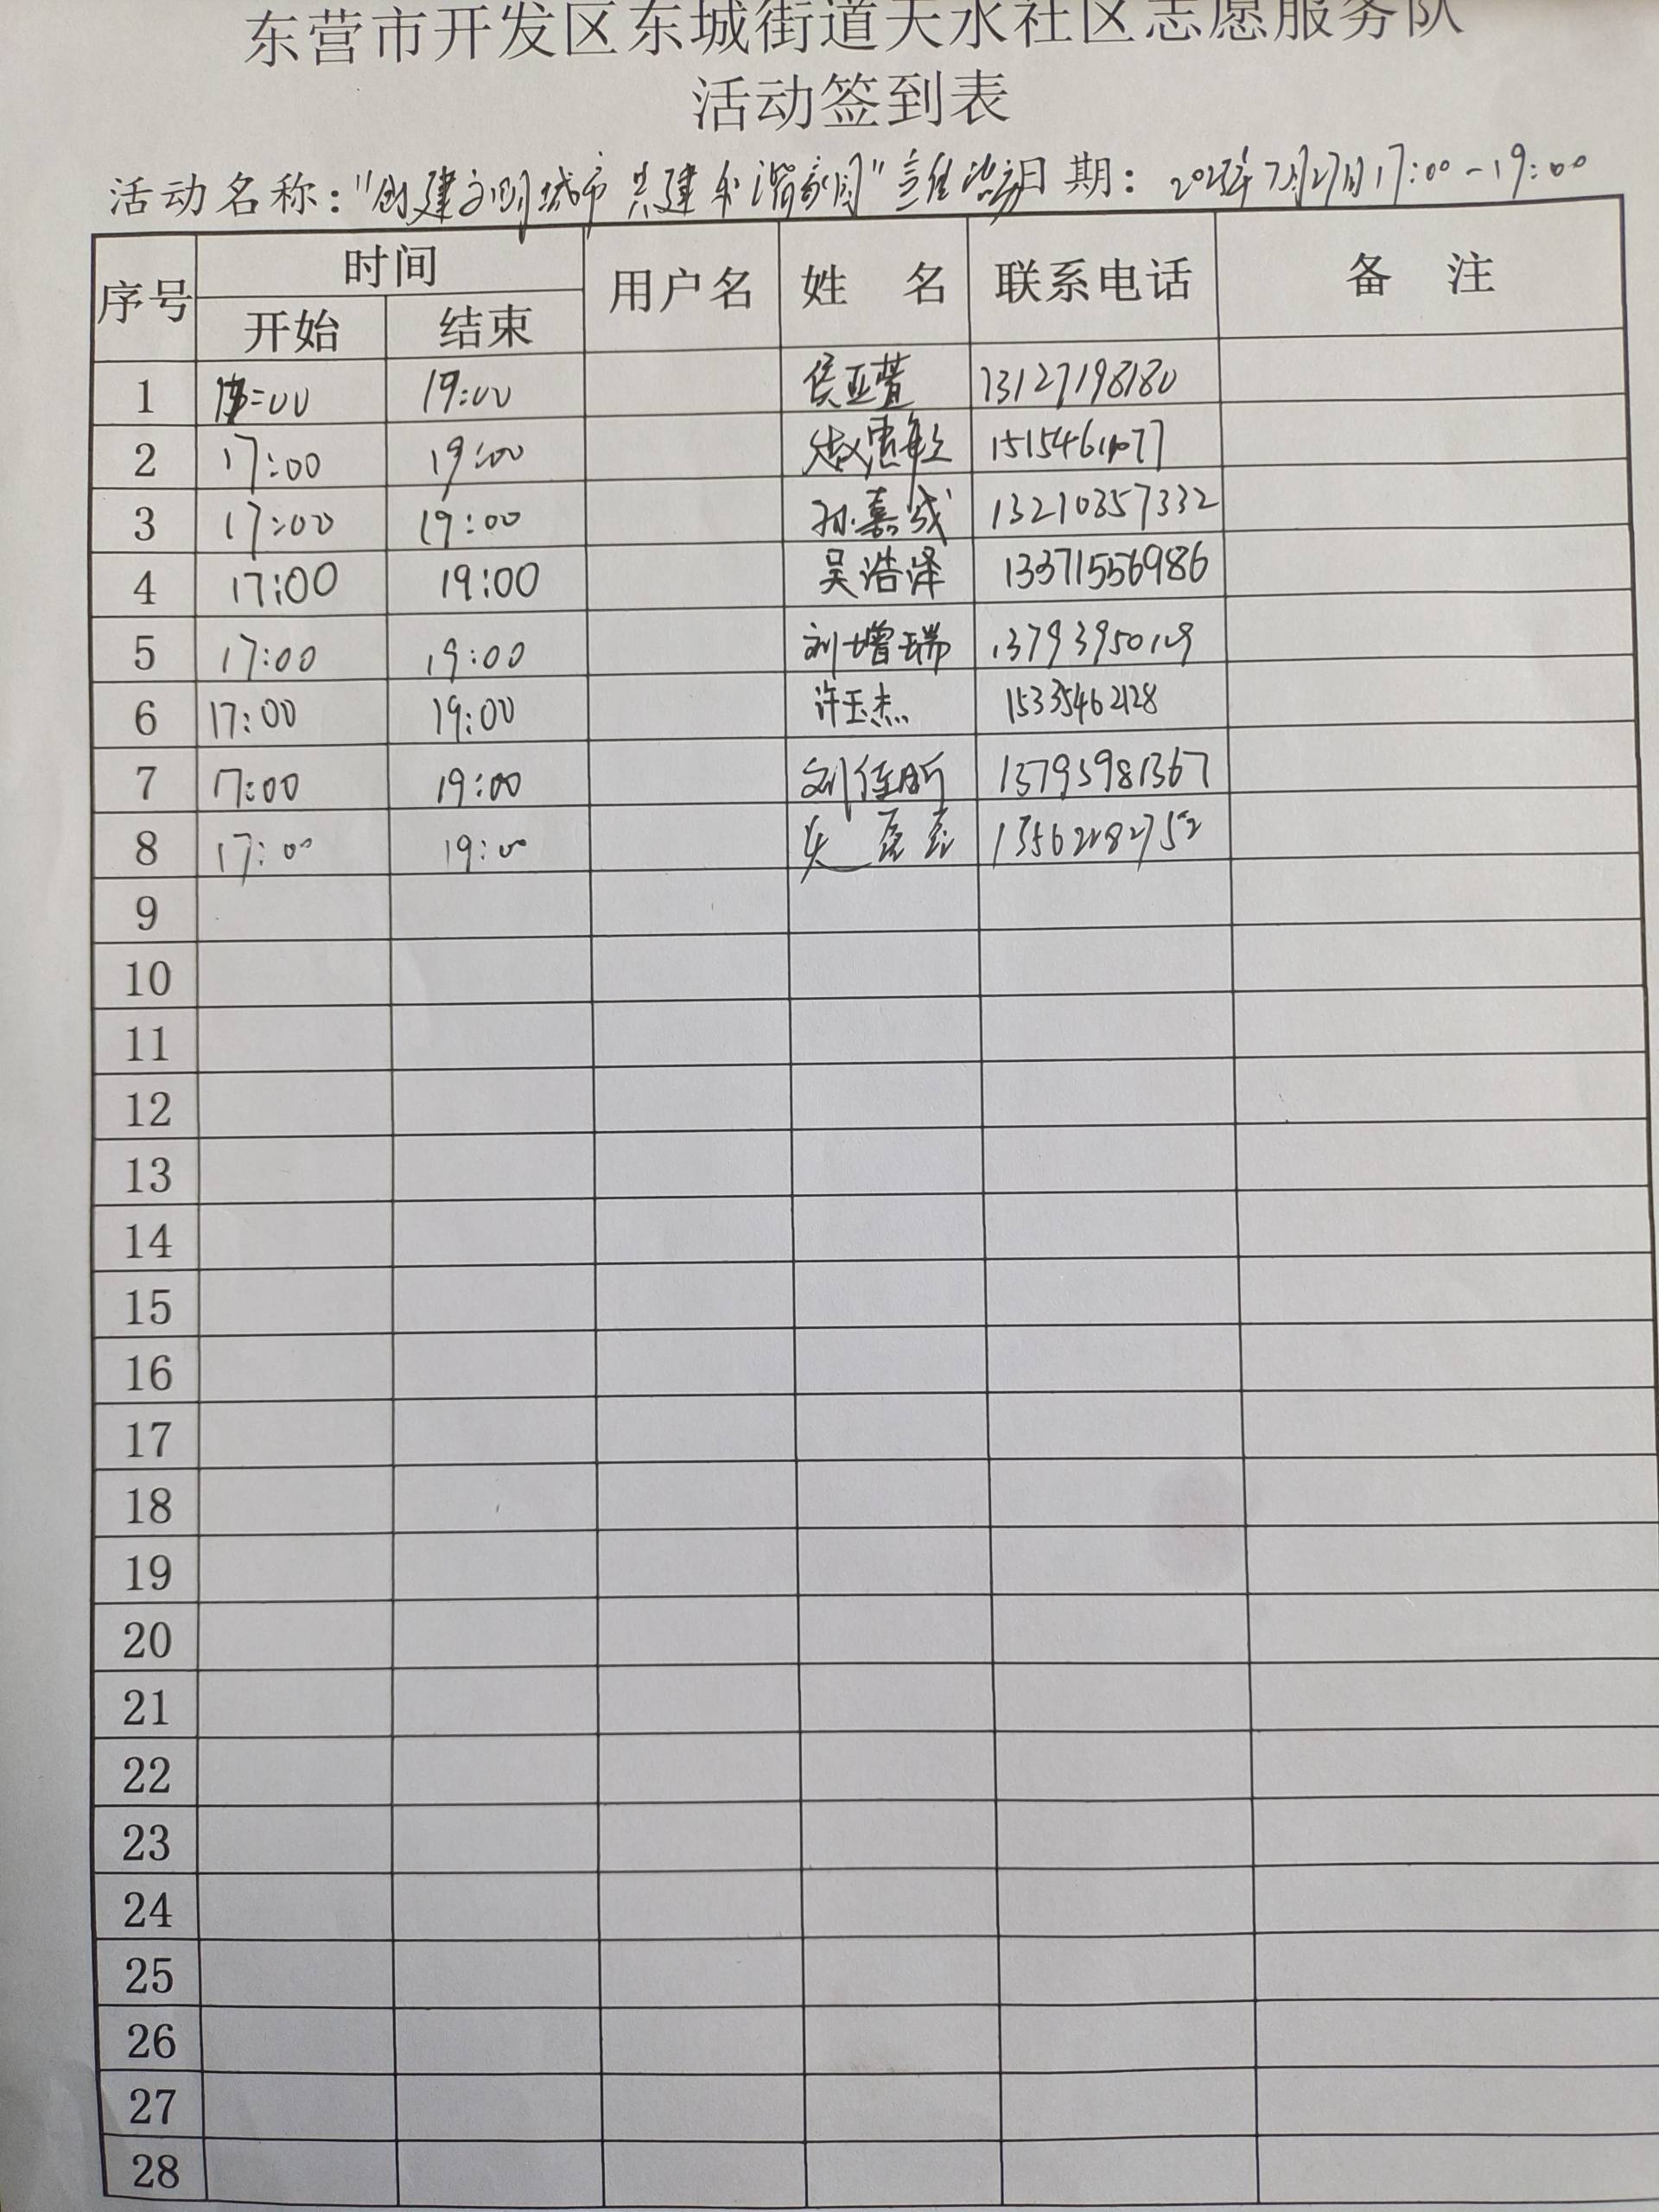 东营市开发区东城街道天水社区志愿服务队
活动签到表
活动名称："创建文明城市 共建和谐家园"宣传活动 日期： 7月27日17:00-19:00
序号 时间 用户名 姓 名 联系电话 备 注
开始 结束
1 17:00 19:00 侯亚萱 13127198180
2 17:00 19:00 赵惠敏
3 17:00 19:00 孙嘉成 13210357332
4 17:00 19:00 吴浩泽 13371556986
5 17:00 19:00 刘增瑞
6 17:00 19:00 许玉杰 15335462128
7 17:00 19:00 刘佳昕 13793981367
8 17:00 19:00 13562182752
9
10
11
12
13
14
15
16
17
18
19
20
21
22
23
24
25
26
27
28